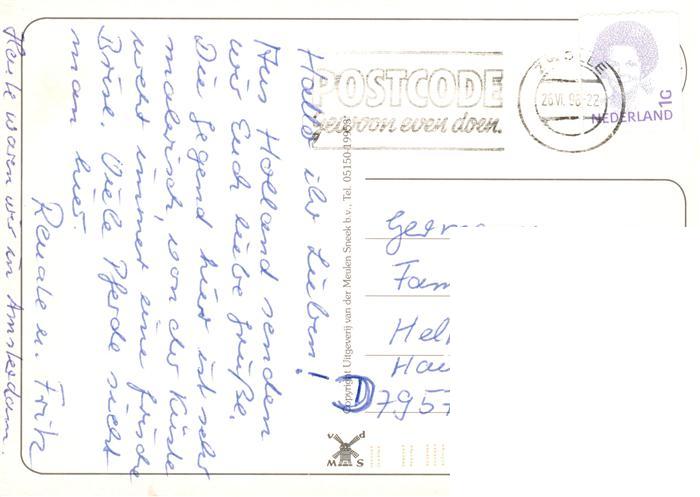 Hallo ihr Lieben!
Aus Holland senden
wir Euch liebe Grüße.
Die Gegend hier ist sehr
malerisch, von der Küste
weht immer eine frische
Brise. Viele Pferde sieht
man hier.
Renate u. Fritz
Heute waren wir in Amsterdam.
POSTCODE
gewoon even doen.
ZWOLLE
26.VI.98-22
NEDERLAND 1G
Copyright Uitgeverij van der Meulen Sneek b.v., Tel. 05150-19953
Fam
D 7957
v d
M S